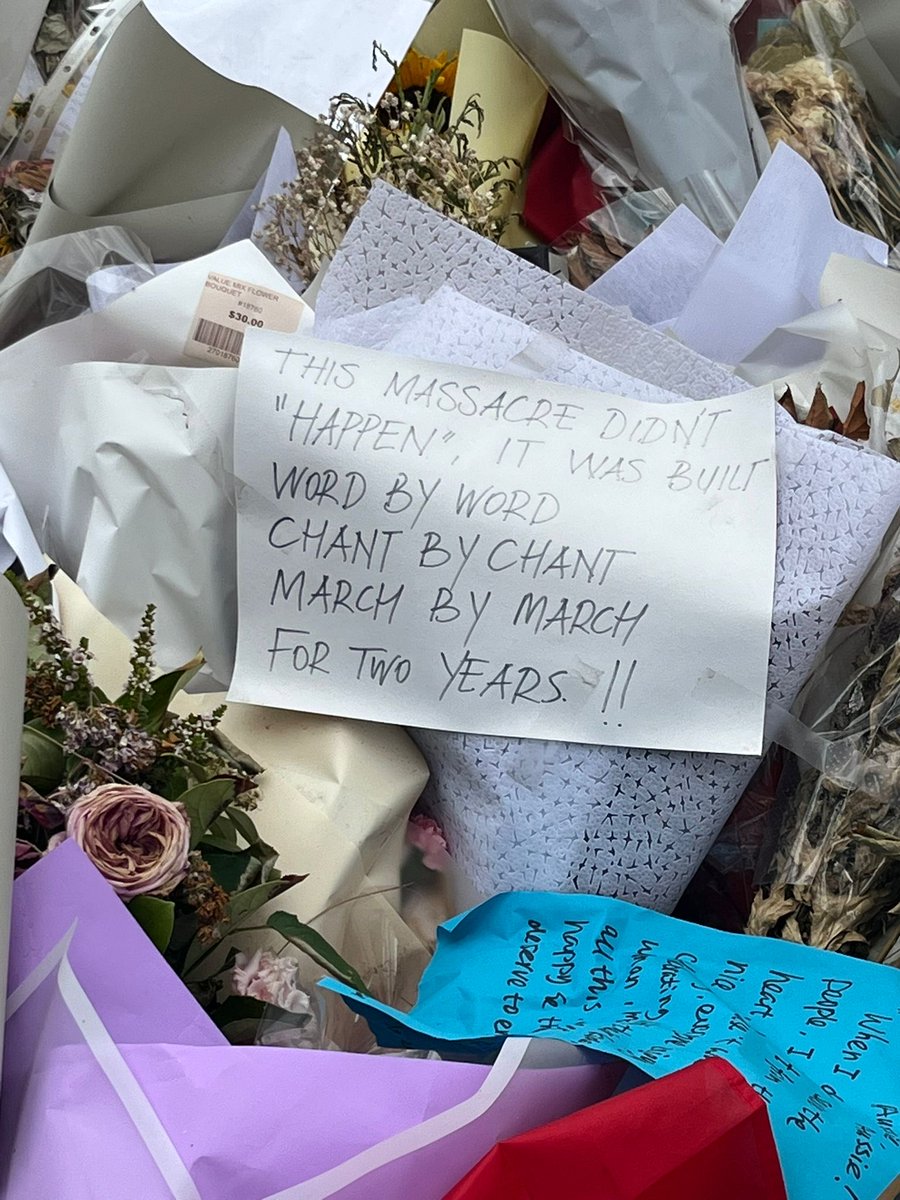 VALUE MIX FLOWER
BOUQUET
#18760
$30.00
THIS MASSACRE DIDN'T
"HAPPEN", IT WAS BUILT
WORD BY WORD
CHANT BY CHANT
MARCH BY MARCH
FOR TWO YEARS. !!
When I
people. I
heart
all this
happy &
deserve to